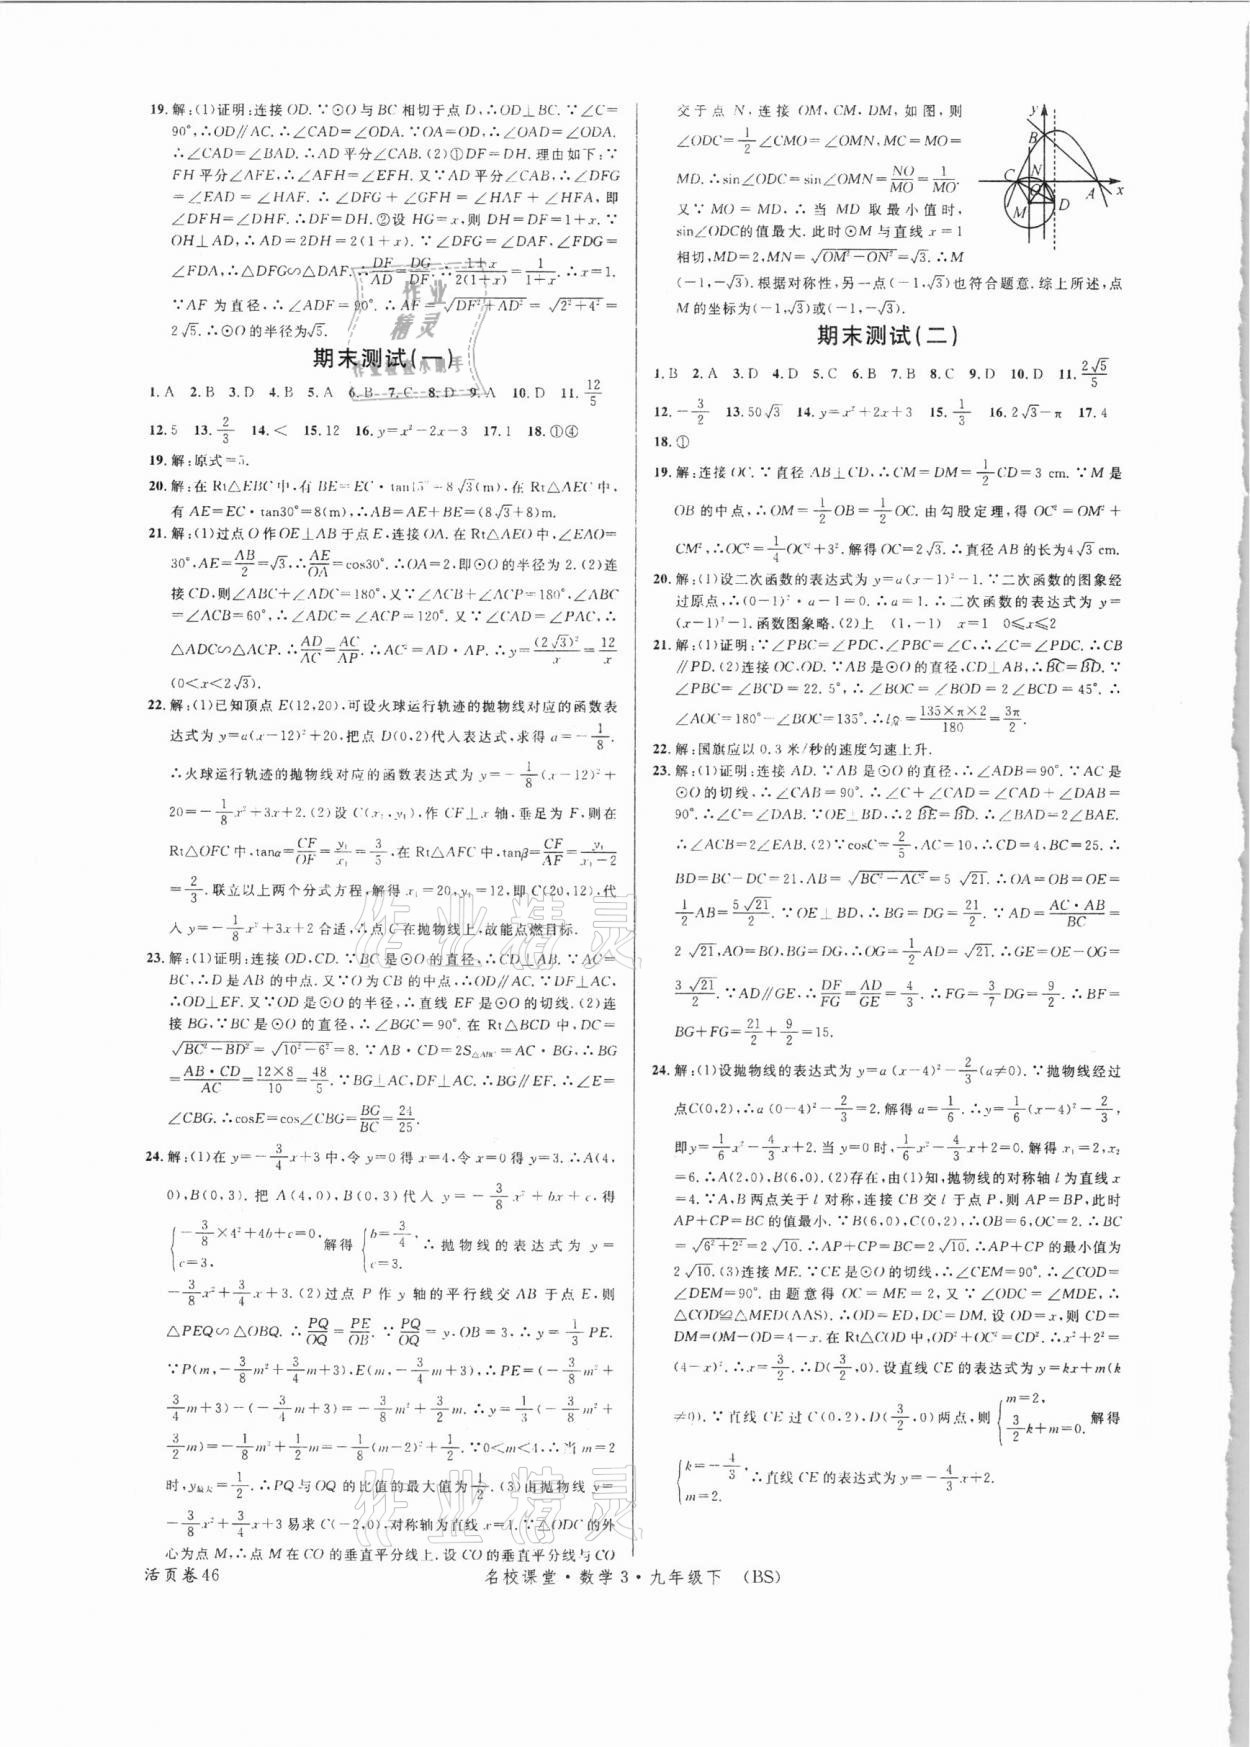 19. 解:(1)证明:连接 OD. ∵⊙O 与 BC 相切于点 D,∴OD⊥BC. ∵∠C=
90°,∴OD∥AC. ∴∠CAD=∠ODA. ∵OA=OD,∴∠OAD=∠ODA.
∴∠CAD=∠BAD. ∴AD 平分∠CAB. (2)①DF=DH. 理由如下:∵
FH 平分∠AFE,∴∠AFH=∠EFH. 又∵AD 平分∠CAB,∴∠DFG
=∠EAD=∠HAF. ∴∠DFG+∠GFH=∠HAF+∠HFA,即
∠DFH=∠DHF. ∴DF=DH. ②设 HG=x,则 DH=DF=1+x. ∵
OH⊥AD,∴AD=2DH=2(1+x). ∵∠DFG=∠DAF,∠FDG=
∠FDA,∴△DFG∽△DAF. ∴DF/AD=DG/DF. ∴(1+x)/(2(1+x))=1/(1+x). ∴x=1.
∵AF 为直径,∴∠ADF=90°. ∴AF=√(DF²+AD²)=√(2²+4²)=
2√5. ∴⊙O 的半径为√5.
期末测试(一)
1. A 2. B 3. D 4. B 5. A 6. B 7. C 8. D 9. A 10. D 11. 12/5
12. 5 13. 2/3 14. < 15. 12 16. y=x²-2x-3 17. 1 18. ①④
19. 解:原式=5.
20. 解:在 Rt△EBC 中,有 BE=EC·tan45°=8√3(m),在 Rt△AEC 中,
有 AE=EC·tan30°=8(m),∴AB=AE+BE=(8√3+8)m.
21. 解:(1)过点 O 作 OE⊥AB 于点 E,连接 OA. 在 Rt△AEO 中,∠EAO=
30°,AE=AB/2=√3,∴AE/OA=cos30°. ∴OA=2,即⊙O 的半径为 2. (2)连
接 CD,则∠ABC+∠ADC=180°,又∵∠ACB+∠ACP=180°,∠ABC
=∠ACB=60°,∴∠ADC=∠ACP=120°. 又∵∠CAD=∠PAC,∴
△ADC∽△ACP. ∴AD/AC=AC/AP. ∴AC²=AD·AP. ∴y=(2√3)²/x=12/x
(0<x<2√3).
22. 解:(1)已知顶点 E(12,20),可设火球运行轨迹的抛物线对应的函数表
达式为 y=a(x-12)²+20,把点 D(0,2)代入表达式,求得 a=-1/8.
∴火球运行轨迹的抛物线对应的函数表达式为 y=-1/8(x-12)²+
20=-1/8x²+3x+2. (2)设 C(x₁,y₁),作 CF⊥x 轴,垂足为 F,则在
Rt△OFC 中,tanα=CF/OF=y₁/x₁=3/5,在 Rt△AFC 中,tanβ=CF/AF=y₁/(x₁-2)
=2/3. 联立以上两个分式方程,解得 x₁=20,y₁=12,即 C(20,12),代
入 y=-1/8x²+3x+2 合适,∴点 C 在抛物线上,故能点燃目标.
23. 解:(1)证明:连接 OD,CD. ∵BC 是⊙O 的直径,∴CD⊥AB. ∵AC=
BC,∴D 是 AB 的中点. 又∵O 为 CB 的中点,∴OD∥AC. ∵DF⊥AC,
∴OD⊥EF. 又∵OD 是⊙O 的半径,∴直线 EF 是⊙O 的切线. (2)连
接 BG,∵BC 是⊙O 的直径,∴∠BGC=90°. 在 Rt△BCD 中,DC=
√(BC²-BD²)=√(10²-6²)=8. ∵AB·CD=2S△ABC=AC·BG,∴BG
=AB·CD/AC=12×8/10=48/5. ∵BG⊥AC,DF⊥AC. ∴BG∥EF. ∴∠E=
∠CBG. ∴cosE=cos∠CBG=BG/BC=24/25.
24. 解:(1)在 y=-3/4x+3 中,令 y=0 得 x=4,令 x=0 得 y=3. ∴A(4,
0),B(0,3). 把 A(4,0),B(0,3)代入 y=-3/8x²+bx+c,得
{-3/8×4²+4b+c=0, c=3. 解得 {b=3/4, c=3. ∴抛物线的表达式为 y=
-3/8x²+3/4x+3. (2)过点 P 作 y 轴的平行线交 AB 于点 E,则
△PEQ∽△OBQ. ∴PQ/OQ=PE/OB. ∵PQ/OQ=y,OB=3,∴y=1/3PE.
∵P(m,-3/8m²+3/4m+3),E(m,-3/4m+3),∴PE=(-3/8m²+
3/4m+3)-(-3/4m+3)=-3/8m²+3/2m. ∴y=1/3(-3/8m²+
3/2m)=-1/8m²+1/2m=-1/8(m-2)²+1/2. ∵0<m<4,∴当 m=2
时,y最大=1/2. ∴PQ 与 OQ 的比值的最大值为1/2. (3)由抛物线 y=
-3/8x²+3/4x+3 易求 C(-2,0),对称轴为直线 x=1. ∵△ODC 的外
心为点 M,∴点 M 在 CO 的垂直平分线上. 设 CO 的垂直平分线与 CO
活页卷 46
交于点 N,连接 OM,CM,DM,如图,则
∠ODC=1/2∠CMO=∠OMN,MC=MO=
MD. ∴sin∠ODC=sin∠OMN=NO/MO=1/MO.
又∵MO=MD,∴当 MD 取最小值时,
sin∠ODC的值最大. 此时⊙M 与直线 x=1
相切,MD=2,MN=√(OM²-ON²)=√3. ∴M
(-1,-√3). 根据对称性,另一点(-1,√3)也符合题意. 综上所述,点
M 的坐标为(-1,√3)或(-1,-√3).
y
B
C
N
O
A
x
M
D
期末测试(二)
1. B 2. A 3. D 4. D 5. C 6. B 7. B 8. C 9. D 10. D 11. 2√5/5
12. -3/2 13. 50√3 14. y=x²+2x+3 15. 1/3 16. 2√3-π 17. 4
18. ①
19. 解:连接 OC. ∵直径 AB⊥CD,∴CM=DM=1/2CD=3 cm. ∵M 是
OB 的中点,∴OM=1/2OB=1/2OC. 由勾股定理,得 OC²=OM²+
CM²,∴OC²=1/4OC²+3². 解得 OC=2√3. ∴直径 AB 的长为4√3 cm.
20. 解:(1)设二次函数的表达式为 y=a(x-1)²-1. ∵二次函数的图象经
过原点,∴(0-1)²·a-1=0. ∴a=1. ∴二次函数的表达式为 y=
(x-1)²-1. 函数图象略. (2)上 (1,-1) x=1 0≤x≤2
21. 解:(1)证明:∵∠PBC=∠PDC,∠PBC=∠C,∴∠C=∠PDC. ∴CB
∥PD. (2)连接 OC,OD. ∵AB 是⊙O 的直径,CD⊥AB,∴B͡C=B͡D. ∵
∠PBC=∠BCD=22.5°,∴∠BOC=∠BOD=2∠BCD=45°. ∴
∠AOC=180°-∠BOC=135°. ∴l=135×π×2/180=3π/2.
22. 解:国旗应以 0.3 米/秒的速度匀速上升.
23. 解:(1)证明:连接 AD. ∵AB 是⊙O 的直径,∴∠ADB=90°. ∵AC 是
⊙O 的切线,∴∠CAB=90°. ∴∠C+∠CAD=∠CAD+∠DAB=
90°. ∴∠C=∠DAB. ∵OE⊥BD,∴2B͡E=B͡D. ∴∠BAD=2∠BAE.
∴∠ACB=2∠EAB. (2)∵cosC=2/5,AC=10,∴CD=4,BC=25. ∴
BD=BC-DC=21,AB=√(BC²-AC²)=5√21. ∴OA=OB=OE=
1/2AB=5√21/2. ∵OE⊥BD,∴BG=DG=21/2. ∵AD=AC·AB/BC=
2√21,AO=BO,BG=DG,∴OG=1/2AD=√21. ∴GE=OE-OG=
3√21/2. ∵AD∥GE,∴DF/FG=AD/GE=4/3. ∴FG=3/7DG=9/2. ∴BF=
BG+FG=21/2+9/2=15.
24. 解:(1)设抛物线的表达式为 y=a(x-4)²-2/3(a≠0). ∵抛物线经过
点 C(0,2),∴a(0-4)²-2/3=2. 解得 a=1/6. ∴y=1/6(x-4)²-2/3,
即 y=1/6x²-4/3x+2. 当 y=0 时,1/6x²-4/3x+2=0. 解得 x₁=2,x₂=
6. ∴A(2,0),B(6,0). (2)存在,由(1)知,抛物线的对称轴 l 为直线 x
=4. ∵A,B 两点关于 l 对称,连接 CB 交 l 于点 P,则 AP=BP,此时
AP+CP=BC 的值最小. ∵B(6,0),C(0,2),∴OB=6,OC=2. ∴BC
=√(6²+2²)=2√10. ∴AP+CP=BC=2√10. ∴AP+CP 的最小值为
2√10. (3)连接 ME. ∵CE 是⊙O 的切线,∴∠CEM=90°. ∴∠COD
=∠DEM=90°. 由题意得 OC=ME=2,又∵∠ODC=∠MDE,∴
△COD≌△MED(AAS). ∴OD=ED,DC=DM. 设 OD=x,则 CD=
DM=OM-OD=4-x. 在 Rt△COD 中,OD²+OC²=CD². ∴x²+2²=
(4-x)². ∴x=3/2. ∴D(3/2,0). 设直线 CE 的表达式为 y=kx+m(k
≠0). ∵直线 CE 过 C(0,2),D(3/2,0)两点,则 {m=2, 3/2k+m=0. 解得
{k=-4/3, m=2. ∴直线 CE 的表达式为 y=-4/3x+2.
名校课堂·数学 3·九年级下 (BS)
作业精灵
作业精灵
作业精灵
作业检查小助手